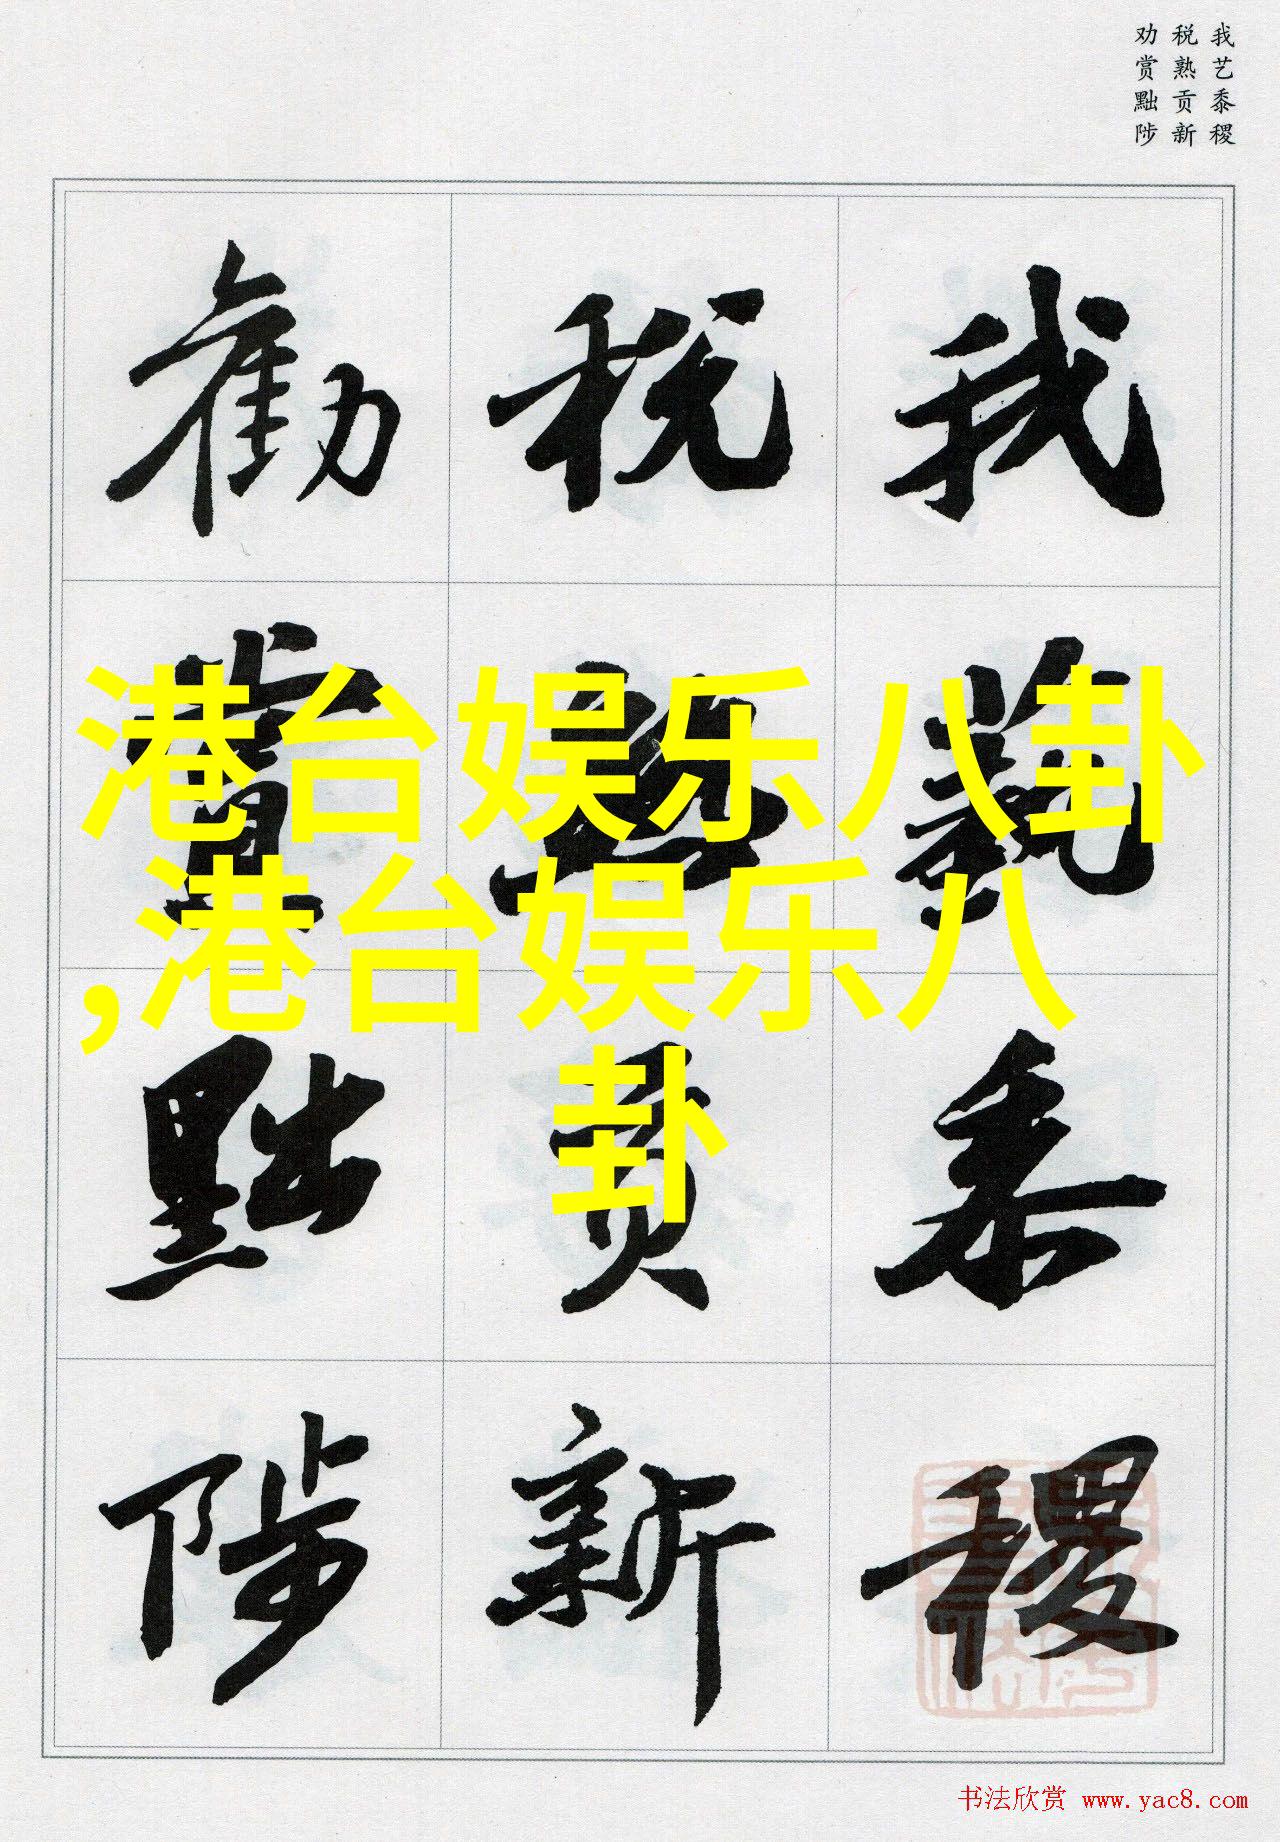 我艺黍稷
税熟贡新
劝赏黜陟
我藝黍稷
税熟贡新
勸賞黜陟
港台娱乐八卦
,港台娱乐八
卦
书法欣赏 www.yac8.com